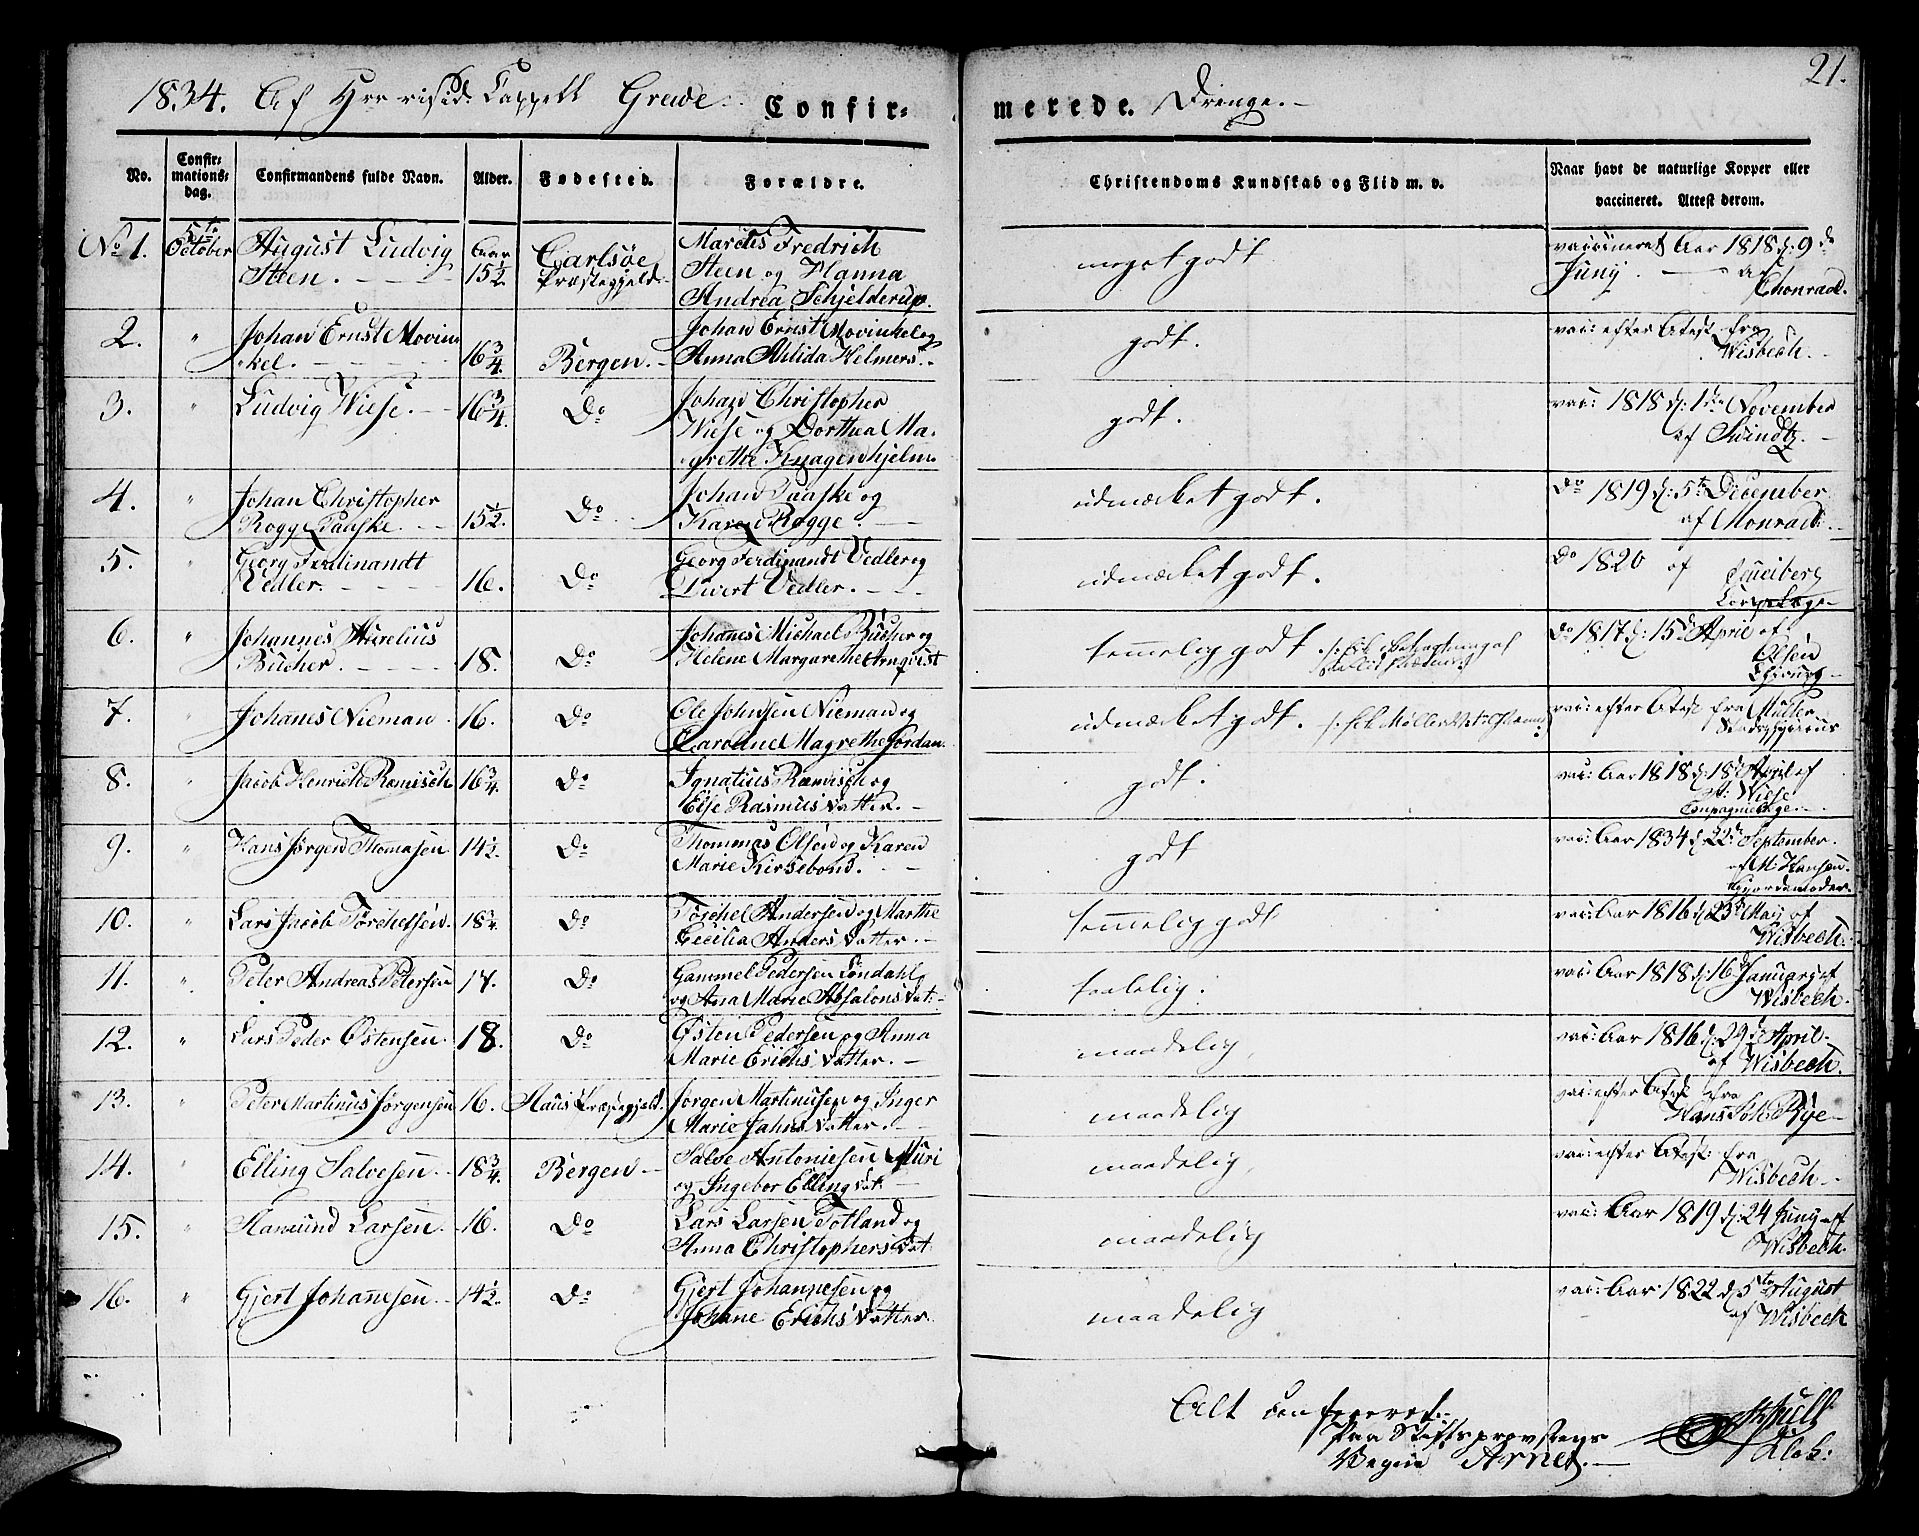 21.
1834. Af Hrr resid. Cappell Greve. Confirmerede. Drenge.
No. Confirmationsdag. Confirmandens fulde Navn. Alder. Fødested. Forældre. Christendoms Kundskab og Flid m. v. Naar havt de naturlige Kopper eller vaccineret. Attest derom.
No 1. 5te October August Ludvig Steen. Aar 15½ Carlsöe Præstegjeld Marcus Fredrich Steen og Hanna Andrea Schjelderup. meget godt vaccineret Aar 1818 d: 9de Juny af Chonrad.
2. " Johan Ernst Movinkel. 16¾ Bergen. Johan Ernst Movinkel og Anna Ahlida Helmers. godt. vac: efter Atest fra Wisbech.
3. " Ludvig Wiese. 16¾ Do Johan Christopher Wiese og Dorthea Magrethe Knagenhjelm godt. vac: 1818 d: 1ste November af Suindtz.
4. " Johan Christopher Rogge Paaske. 15½. Do Johan Paaske og Karen Rogge. udmærket godt. Do 1819 d: 5te December af Monrad.
5. " Georg Ferdinandt Vedler. 16. Do Georg Ferdinandt Vedler og Divert Vedler. udmærket godt. Do 1820 af
6. " Johannes Aurelius Bücher. 18. Do Johannes Michael Bücher og Helene Margarethe Arnquist temmelig godt Do 1817 d: 15de April af Olsen Chirurg
7. " Johannes Nieman 16. Do Ole Johnsen Nieman og Caroline Magrethe Jordan. udmærket godt. vac: efter Atest fra Müller
8. " Jacob Henrich Ramisch 16¾ Do Ignatius Ramisch og Else Rasmus Datter. godt. vac: Aar 1818 d: 18de April af Wiese Compagnie Læge.
9. " Hans Jörgen Thomasen 14½. Do Thommas Olsen og Karen Marie Kirsebond. godt vac: Aar 1834 d: 22de September af M: Hansen Gjordemoder.
10. " Lars Jacob Torchelsen. 18¾ Do Torchel Andersen og Marthe Cecilia Anders Datter. temmelig godt vac: Aar 1816 d: 25de May af Wisbech.
11. " Peter Andreas Petersen 17. Do Gammel Pedersen Löndahl og Ana Marie Absalons Dat: taalelig. vac: Aar 1818 d: 16de January af Wisbech.
12. " Lars Peder Östensen. 18. Do Östen Pedersen og Anna Marie Erichs Datter. maadelig. vac: Aar 1816 d: 29de April af Wisbech.
13. " Peter Martinus Jörgensen 16. Haus Præstegjeld. Jörgen Martinusen og Inger Marie Jahns Datter. maadelig vac: efter Atest fra Hans Rye
14. " Elling Salvesen. 18¾ Bergen Salve Antoniesen Muri og Ingebor Elling Dat: maadelig. vac: efter Atest fra Wisbech.
15. " Hamund Larsen. 16. Do Lars Larsen Totland og Anna Christophers Dat. maadelig vac: Aar 1819 d: 24 Juny af Wisbech.
16. " Gjert Johannesen. 14½. Do Gjert Johannesen og Johanne Erichs Datter. maadelig vac: Aar 1822 d: 5te August af Wisbech
Alt confereret.
Paa Stiftsprovstens
Vegne Arnet.
Klok: